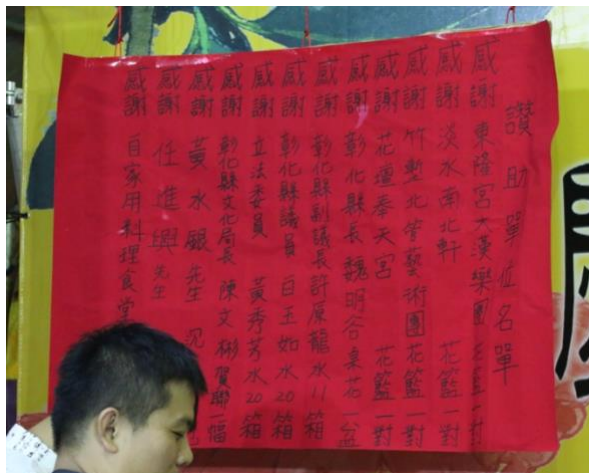 讚助單位名單
感謝 東隆宮大漢樂團 花籃一對
感謝 淡水南北軒 花籃一對
感謝 竹塹北管藝術團 花籃一對
感謝 花壇奉天宮 花籃一對
感謝 彰化縣長魏明谷桌花一盆
感謝 彰化縣副議長許原龍水11箱
感謝 彰化縣議員 白玉如水20箱
感謝 立法委員 黃秀芳水20箱
感謝 彰化縣文化局長 陳文彬賀聯一幅
感謝 黃水銀先生
感謝 任進興先生
感謝 自家用料理食堂